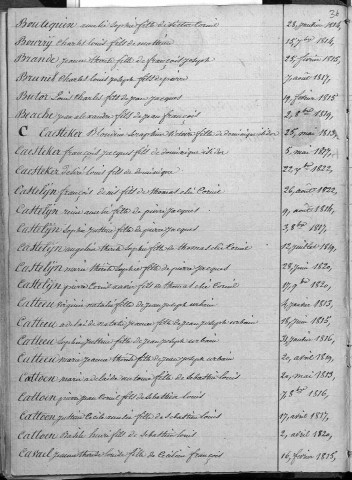 31
Boutiquin amelie sophie fille de victor Corneil 28, janvier 1814,
Bowry Charles Louis fils de 15, 7bre 1814,
Brande jeanne thérèse fille de françois joseph 25, février 1815,
Brunet Charles Louis joseph fils de pierre 7, aout 1817,
Butor Louis Charles fils de jean jacques 19, février 1815
Brache jean alexandre fils de jean francois 2, 8bre 1819,
C Caesteker Blondine Seraphine Victoire fille de dominique isidor 25, mai 1813,
Caesteker françois jacques fils de dominique isidor 5, mai 1817,
Caesteker désiré Louis fils de dominique 22, 7bre 1822,
Castelyn françois fils de thomas elie Corneil 26, aout 1822,
Castelyn reine amelie fille de pierre jacques 9, aout 1814,
Castelyn Sophie justine fille de pierre jacques 3, 8bre 1817,
Castelyn angeline thérèse sophie fille de thomas elie Corneil 12, juillet 1819,
Castelyn marie thérèse sophie fille de pierre jacques 28, juin 1820,
Castelyn pierre Corneil fils de thomas elie Corneil 17, 9bre 1820,
Catteeu virginie natalie fille de jean joseph urbain 4, janvier 1813,
Catteeu adelaide natalie jeanne fille de jean joseph urbain 18, juin 1815,
Catteeu Sophie justine fille de jean joseph urbain 31, janvier 1816,
Catteeu marie jeanne thérèse fille de jean joseph urbain 20, avril 1819,
Cattoen marie adelaide victoire fille de Sebastien Louis 20, mai 1813,
Cattoen pierre jean Corneil fils de Sebastien Louis 7, 8bre 1816,
Cattoen justine Cecile amelie fille de Sebastien Louis 17, avril 1817,
Cattoen Basile henri fils de Sebastien Louis 2, avril 1820,
Casael jeanne thérèse Louise fille de françois 16, février 1815,